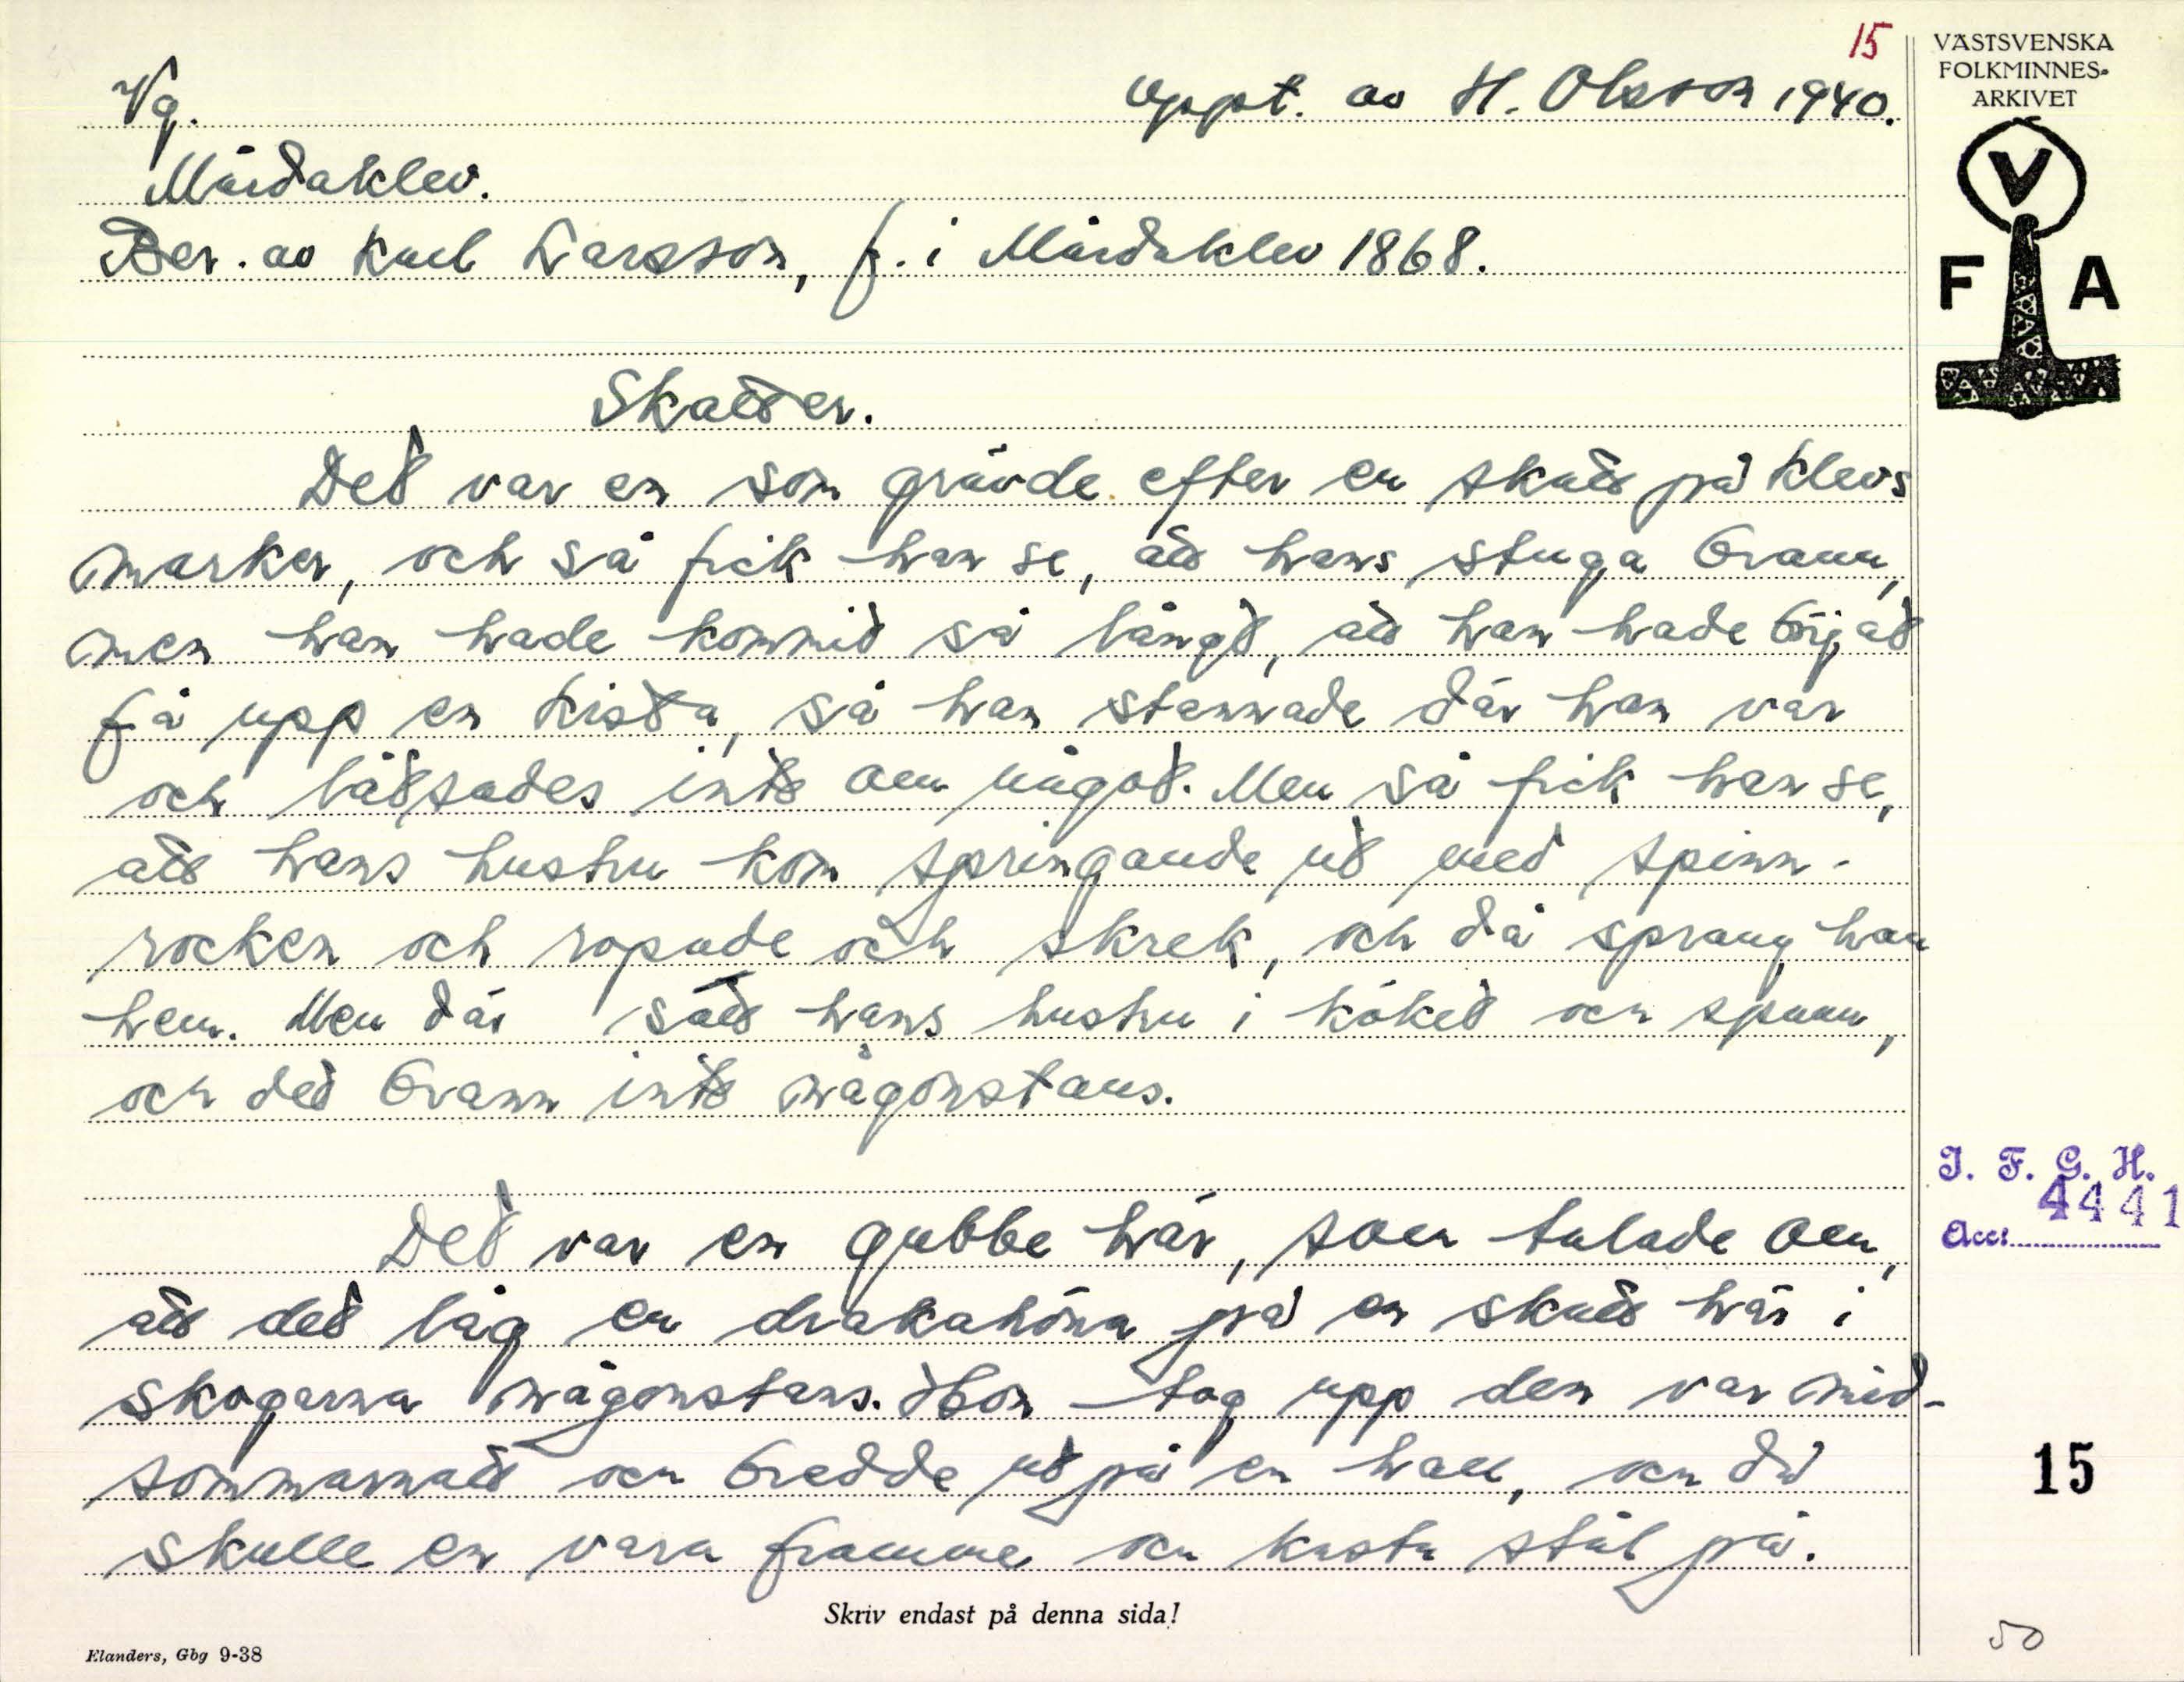 15
VÄSTSVENSKA
FOLKMINNES-
ARKIVET
Vg.
Uppt. av H. Olsson 1940.
Mårdaklev.
Ber. av Karl Larsson, f. i Mårdaklev 1868.
V
F A
Skatter.
Det var en som grävde efter en skatt på Klevs
marker, och så fick han se, att hans stuga brann,
men han hade kommit så långt, att han hade börjat
få upp en kista, så han stannade där han var
och låtsades inte om något. Men så fick han se,
att hans hustru kom springande ut med spinn-
rocken och ropade och skrek, och då sprang han
hem. Men där satt hans hustru i köket och spann,
och det brann inte någonstans.
Det var en gubbe här, som talade om,
att det låg en drakahöna på en skatt här i
skogarna någonstans. Hon tog upp den var mid-
sommarnatt och bredde ut på en hall, och då
skulle en vara framme och kasta stål på.
I. F. G. H.
Acc: 4441
15
Skriv endast på denna sida!
Elanders, Gbg 9-38
50